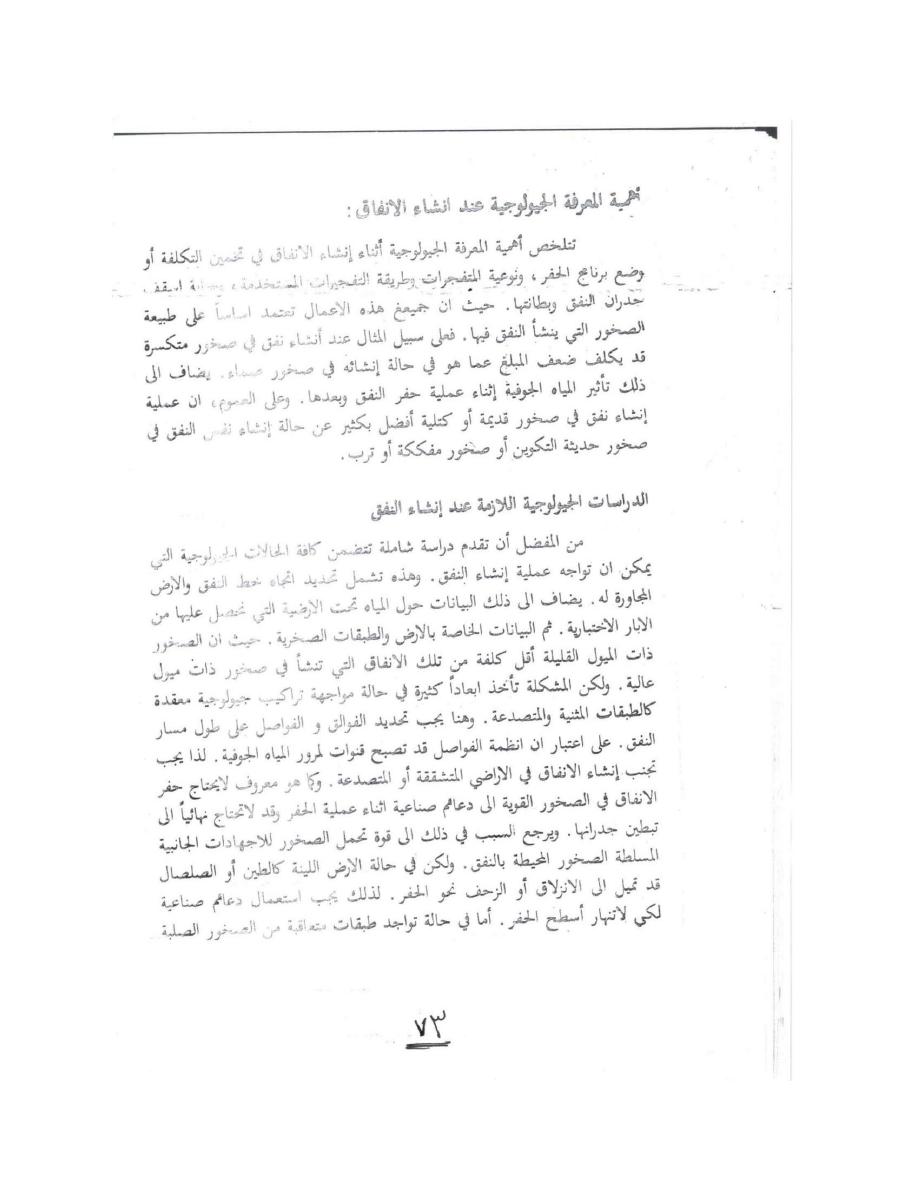 أهمية المعرفة الجيولوجية عند انشاء الانفاق :
تتلخص أهمية المعرفة الجيولوجية أثناء إنشاء الانفاق في تخمين التكلفة أو
وضع برنامج الحفر ، ونوعية المتفجرات وطريقة التفجيرات المستخدمة ،
جدران النفق وبطانتها . حيث ان جميعغ هذه الاعمال تعتمد اساساً على طبيعة
الصخور التي ينشأ النفق فيها . فعلى سبيل المثال عند أنشاء نفق في صخور متكسرة
قد يكلف ضعف المبلغ عما هو في حالة إنشائه في صخور صماء . يضاف الى
ذلك تأثير المياه الجوفية إثناء عملية حفر النفق وبعدها . وعلى العموم ، ان عملية
إنشاء نفق في صخور قديمة أو كتلية أفضل بكثير عن حالة إنشاء نفس النفق في
صخور حديثة التكوين أو صخور مفككة أو ترب .
الدراسات الجيولوجية اللازمة عند إنشاء النفق
من المفضل أن تقدم دراسة شاملة تتضمن كافة الحالات الجيولوجية التي
يمكن ان تواجه عملية إنشاء النفق . وهذه تشمل تحديد اتجاه خط النفق والارض
المجاورة له . يضاف الى ذلك البيانات حول المياه تحت الارضية التي نحصل عليها من
الابار الاختبارية . ثم البيانات الخاصة بالارض والطبقات الصخرية . حيث ان الصخور
ذات الميول القليلة أقل كلفة من تلك الانفاق التي تنشأ في صخور ذات ميول
عالية . ولكن المشكلة تأخذ ابعاداً كثيرة في حالة مواجهة تراكيب جيولوجية معقدة
كالطبقات المثنية والمتصدعة . وهنا يجب تحديد الفوالق و الفواصل على طول مسار
النفق . على اعتبار ان انظمة الفواصل قد تصبح قنوات لمرور المياه الجوفية . لذا يجب
تجنب إنشاء الانفاق في الاراضي المتشققة أو المتصدعة . وكما هو معروف لايحتاج حفر
الانفاق في الصخور القوية الى دعائم صناعية اثناء عملية الحفر وقد لاتحتاج نهائياً الى
تبطين جدرانها . ويرجع السبب في ذلك الى قوة تحمل الصخور للاجهادات الجانبية
المسلطة الصخور المحيطة بالنفق . ولكن في حالة الارض اللينة كالطين أو الصلصال
قد تميل الى الانزلاق أو الزحف نحو الحفر . لذلك يجب استعمال دعائم صناعية
لكي لاتنهار أسطح الحفر . أما في حالة تواجد طبقات متعاقبة من الصخور الصلبة
٧٣